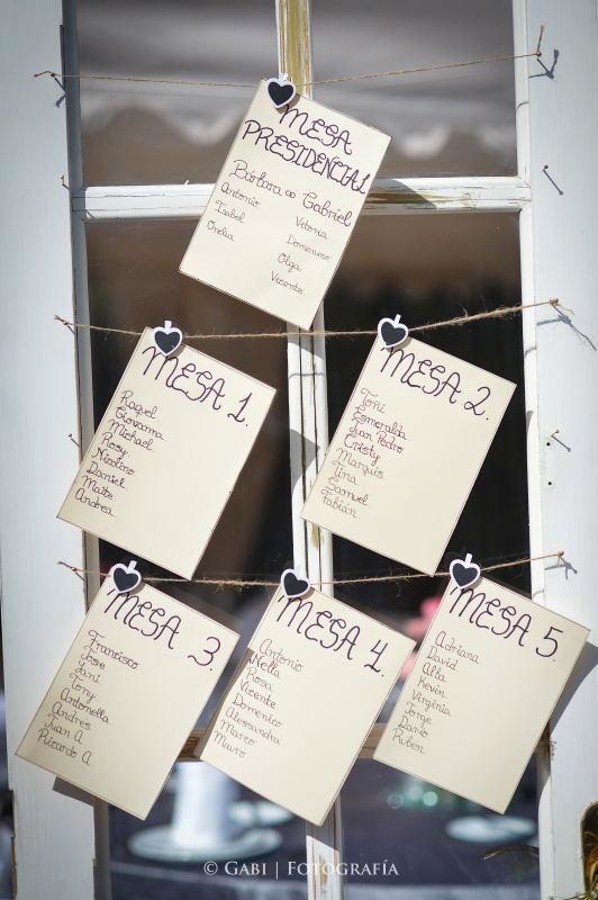 MESA
PRESIDENCIAL
Bárbara ∞ Gabriel
Antonio
Isabel
Onelia
Vitoria
Domenico
Olga
Vicente
MESA 1.
Raquel
Giovanna
Michael
Rosy
Nicolino
Daniel
Maite
Andrea
MESA 2.
Toñi
Esmeralda
Juan Pedro
Cristy
Marquis
Tina
Samuel
Fabián
MESA 3.
Francisco
Jose
Jani
Tony
Antonella
Andres
Juan A
Ricardo A
MESA 4.
Antonio
Nella
Rosa
Vicente
Domenico
Alessandra
Marco
Mauro
MESA 5.
Adriana
David
Alba
Kevin
Virginia
Jorge
Dario
Ruben
© GABI | FOTOGRAFÍA